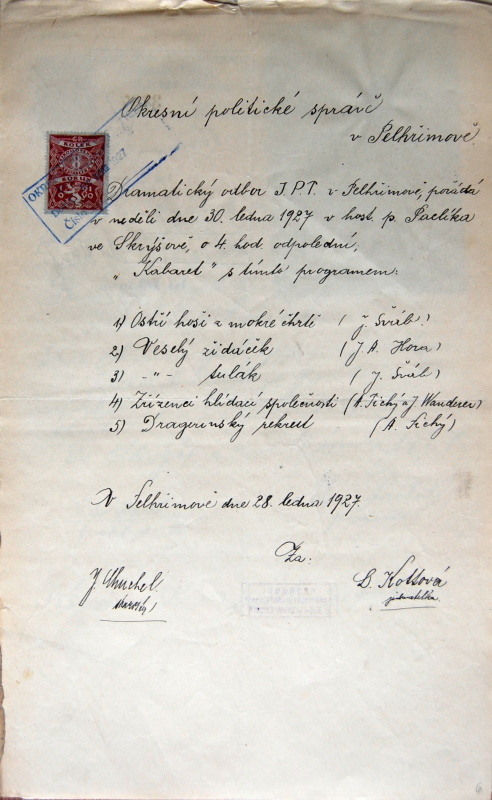 Okresní politické správě
v Pelhřimově.
Dramatický odbor J.P.T. v Pelhřimově, pořádá
v neděli dne 30. ledna 1927 v host. p. Paclíka
ve Skrýšově, o 4. hod. odpolední,
„Kabaret" s tímto programem:
1) Ostří hoši z mokré čtvrti (J. Šváb.)
2) Veselý židáček (J. A. Hora)
3) -"- tulák (J. Šváb)
4) Zřízenci hlídací společnosti (A. Tichý a J. Wanderer)
5) Dragounský rekrut (A. Tichý)
V Pelhřimově dne 28. ledna 1927.
Za:
J. starosta
B. Kottová
jednatelka